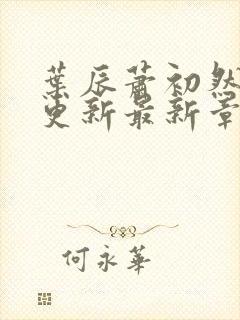 葉辰蕭初然
更新最新章
何永華